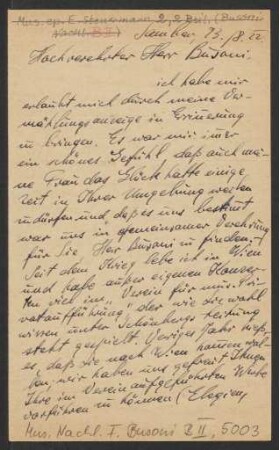 Mus. ep. E. Steuermann 2, 2 Beil. (Busoni-
Nachl. B II)
Sambor, 13./8.22
Hochverehrter Herr Busoni.
ich habe mir
erlaubt mich durch meine Ver-
mählungsanzeige in Erinnerung
zu bringen. Es war mir immer
ein schönes Gefühl daß auch mei-
ne Frau das Glück hatte einige
Zeit in Ihrer Umgebung weilen
zu dürfen und daß es uns bestimmt
war uns in gemeinsamer Verehrung
für Sie Herr Busoni zu finden.
Seit dem Krieg lebe ich in Wien
und habe außer eigenen Klavier-
viel im „Verein für mus. Pri-
vataufführung" der wie Sie wohl
wissen unter Schönbergs Leitung
steht gespielt. Voriges Jahr hieß
es, daß Sie nach Wien kommen wol-
len; wir haben uns gefreut Ihnen
Ihre im Verein aufgeführten Werke
vorführen zu können (Elegien,
Mus. Nachl. F. Busoni B II, 5003